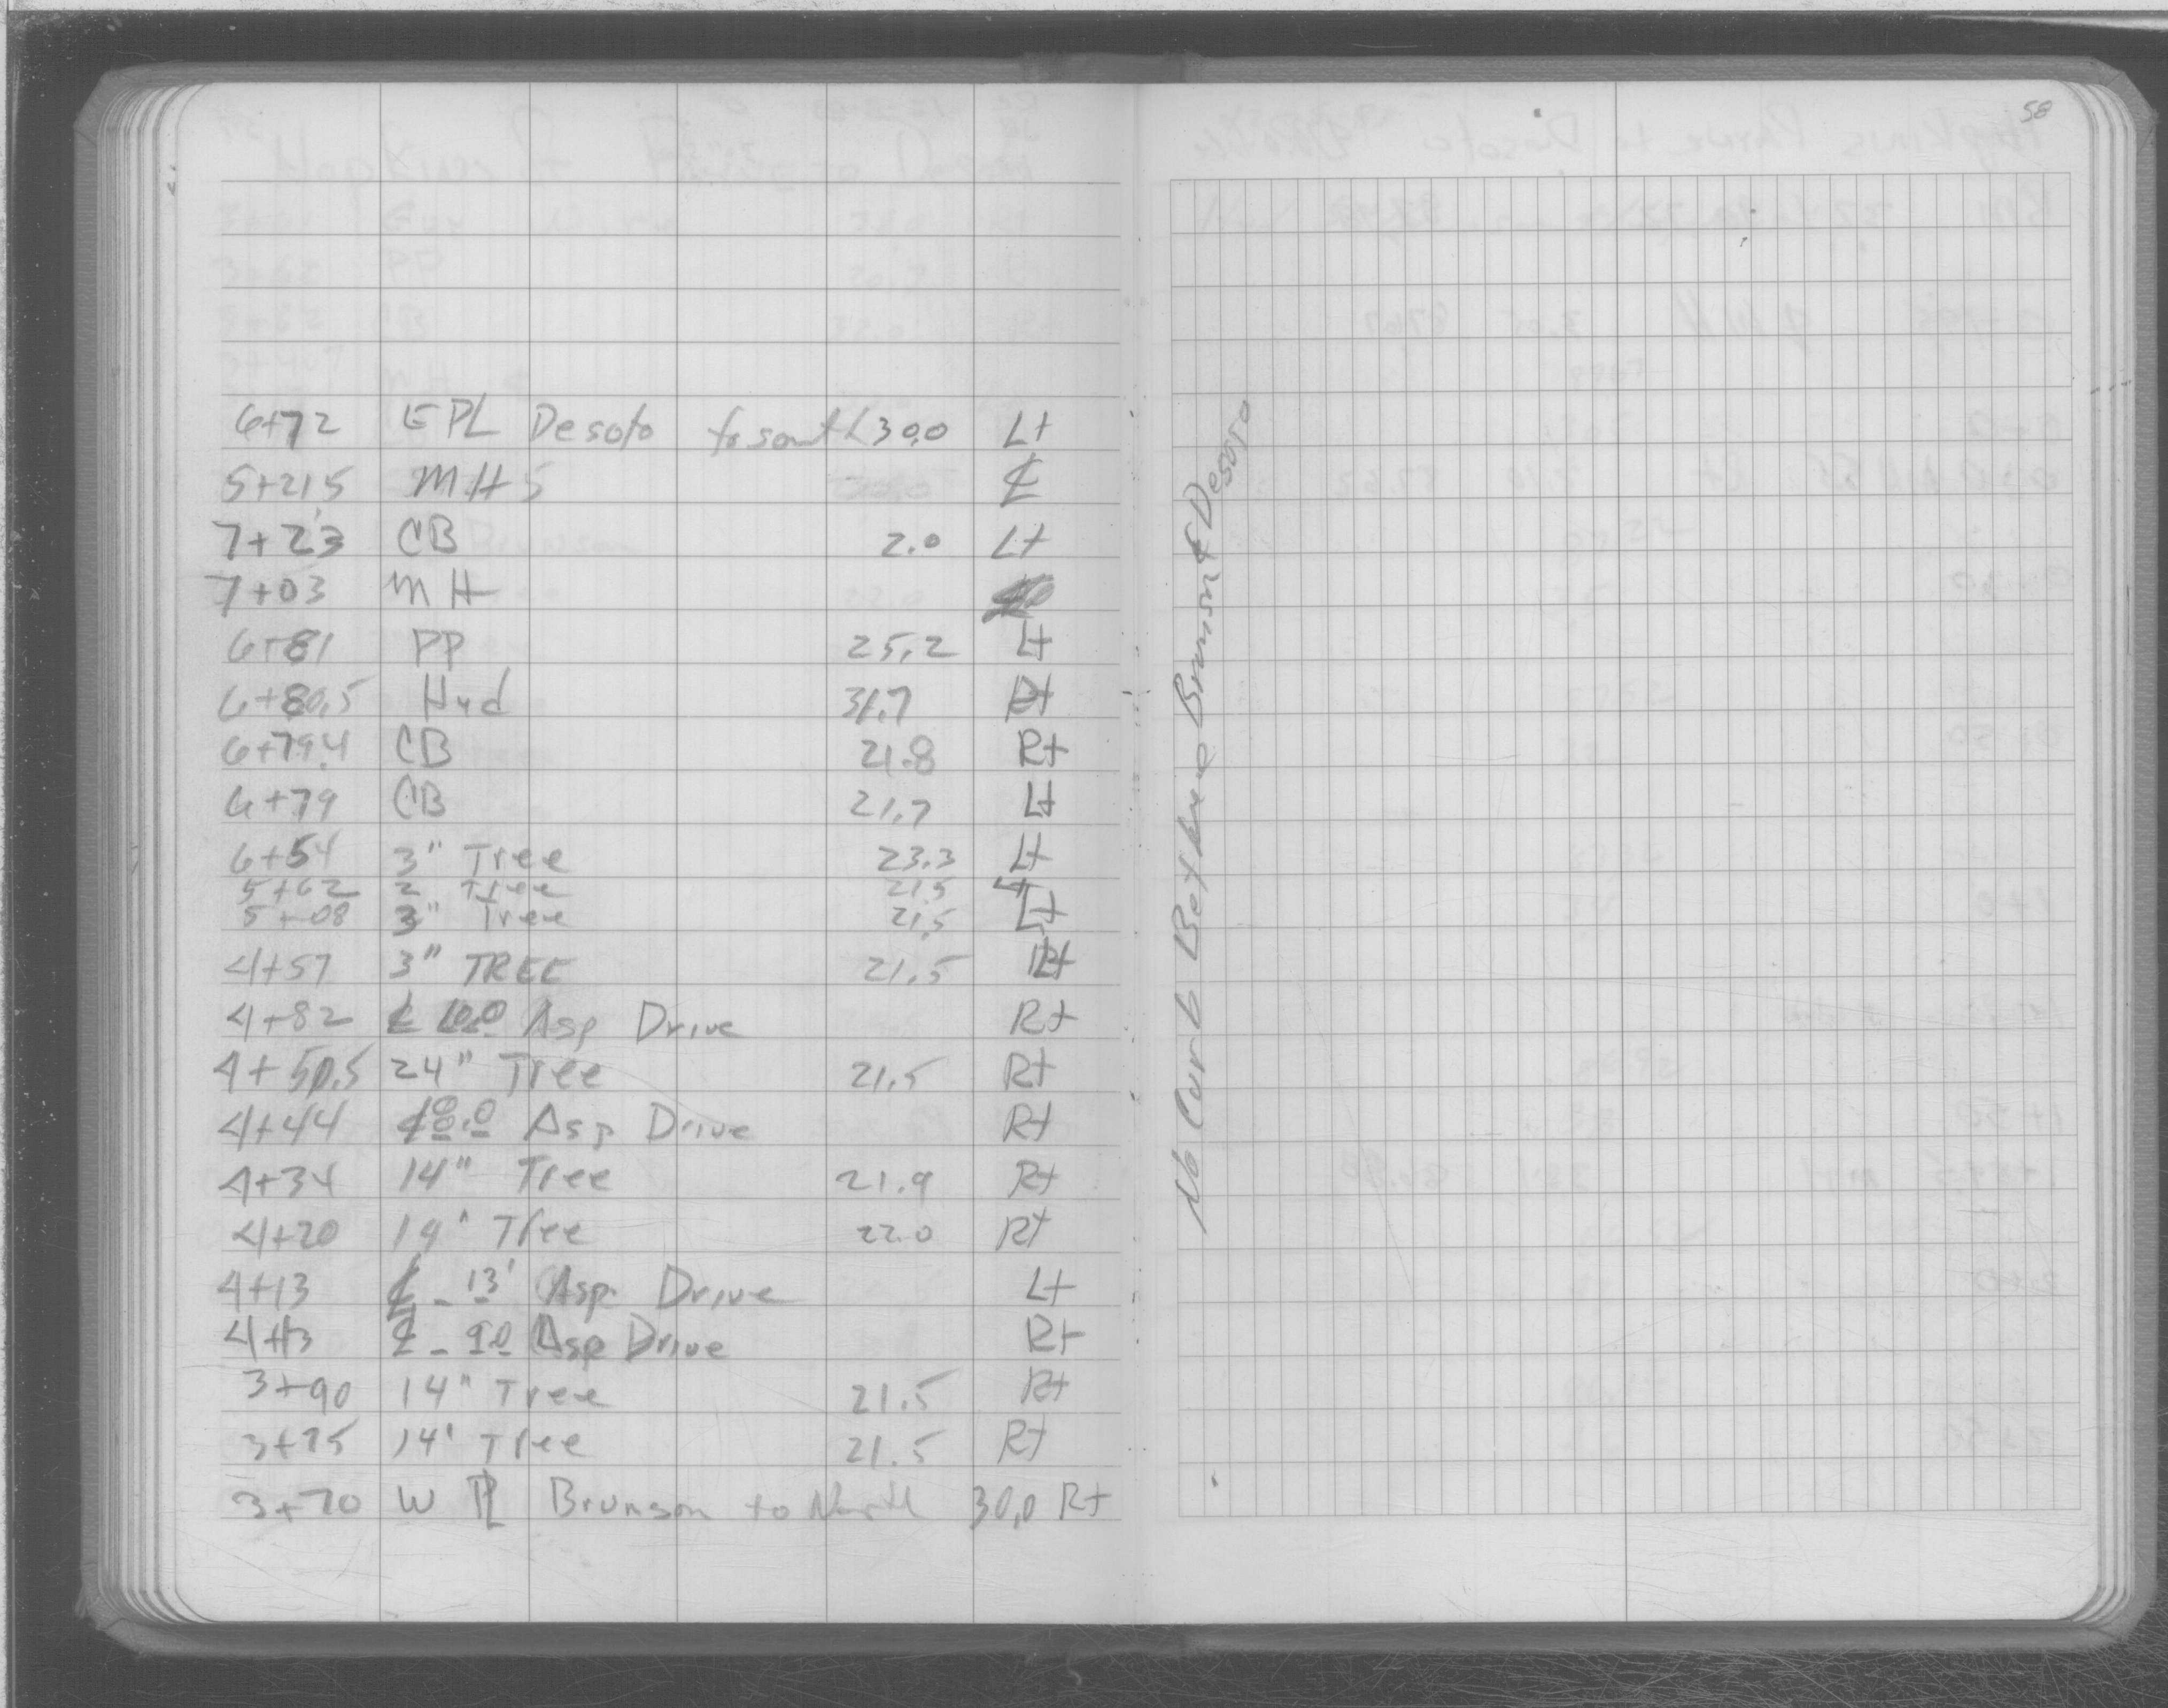 58
6+72 EPL Desoto to south 30.0 Lt
5+21.5 MH 5 ℄
7+23 CB 2.0 Lt
7+03 MH
6+81 PP 25.2 Lt
6+80.5 Hyd 31.7 Rt
6+79.4 CB 21.8 Rt
6+79 CB 21.7 Lt
6+54 3" Tree 23.3 Lt
5+62 2 Tree 21.5 Lt
5+08 3" Tree 21.5 Lt
4+57 3" TREE 21.5
4+82 ℄ 10.0 Asp Drive Rt
4+50.5 24" Tree 21.5 Rt
4+44 ℄ 8.0 Asp Drive Rt
4+34 14" Tree 21.9 Rt
4+20 14" Tree 22.0 Rt
4+13 ℄ - 13' Asp. Drive Lt
4+13 ℄ - 9.0 Asp Drive Rt
3+90 14" Tree 21.5 Rt
3+75 14' Tree 21.5 Rt
3+70 W PL Brunson to North 30.0 Rt
No Curb Between Brunson & Desoto